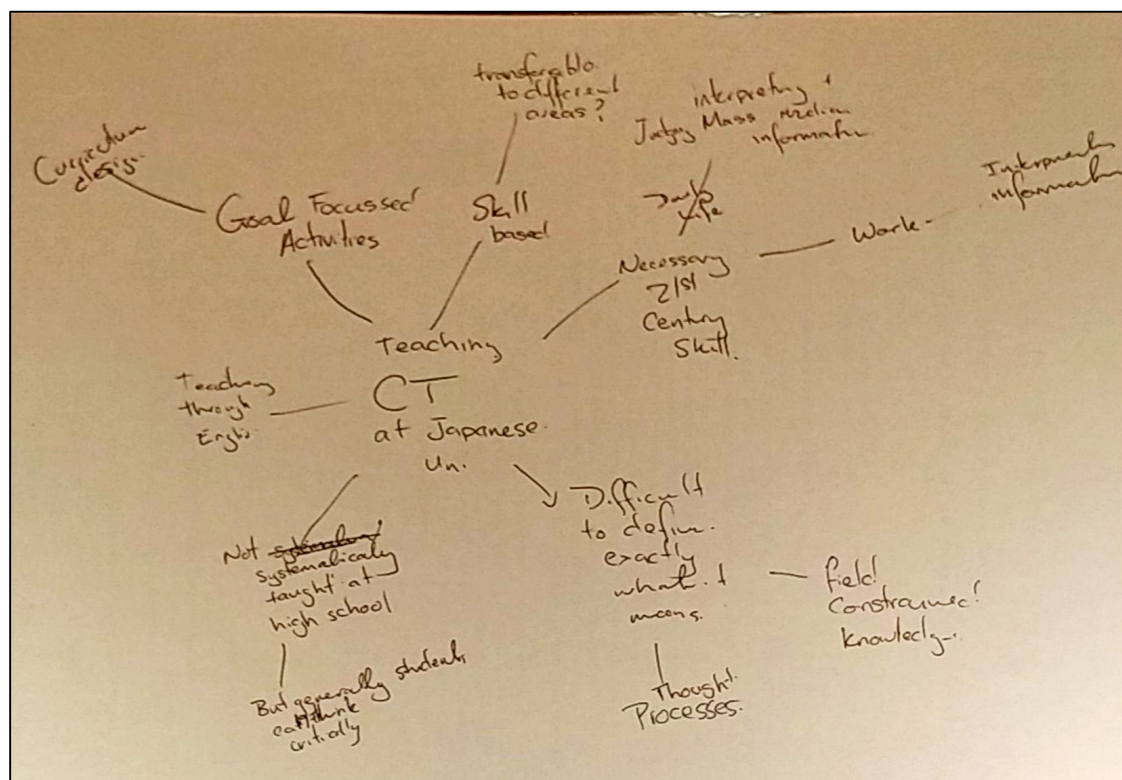 Curriculum
design.
Goal Focussed
Activities
transferable
to different
areas?
Skill
based
interpreting +
Judging Mass media
information
Daily
Life
Necessary
21st
Century
Skill.
Work
information
Teaching
CT
at Japanese
Un.
Teaching
through
Not
systematically
taught at
high school
But generally students
think
critically
Difficult
to define
exactly
what it
means.
Thought
Processes.
field
Constrained
knowledge